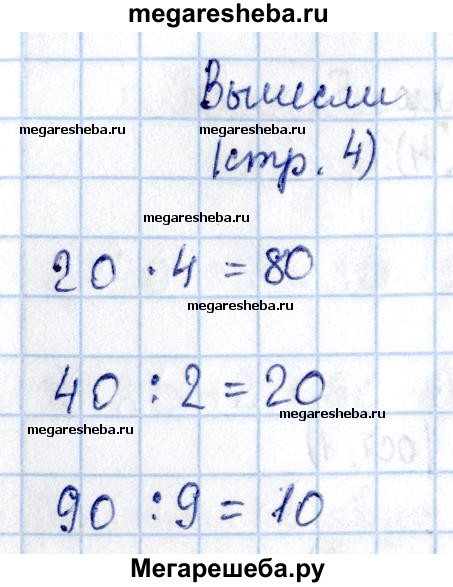 megaresheba.ru
Вычисли
megaresheba.ru
megaresheba.ru
(стр. 4)
megaresheba.ru
20 · 4 = 80
megaresheba.ru
40 : 2 = 20
megaresheba.ru
megaresheba.ru
90 : 9 = 10
Мегарешеба.ру